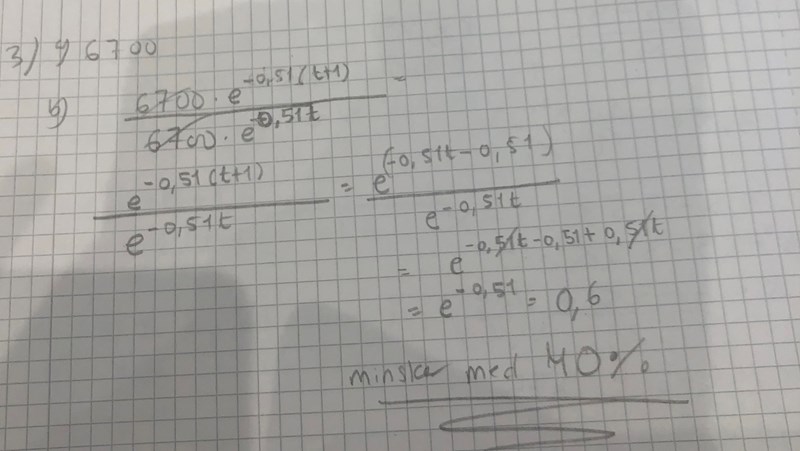 3) a) 6700
b) 6700 · e^-0,51(t+1) / 6700 · e^-0,51t =
e^-0,51(t+1) / e^-0,51t = e^(-0,51t-0,51) / e^-0,51t
= e^-0,51t-0,51+0,51t
= e^-0,51 = 0,6
minskar med 40%